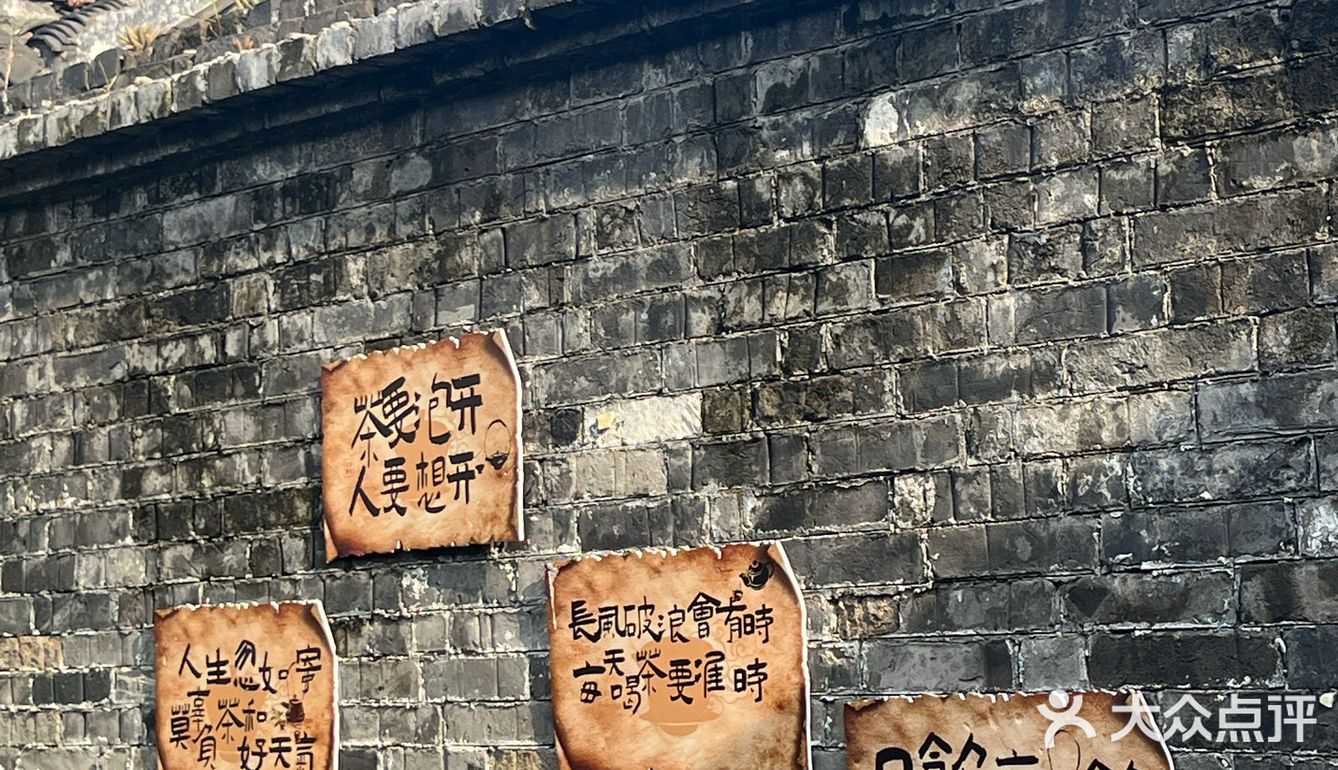 茶要泡开
人要想开
長風破浪會有時
每天喝茶要准時
人生忽如寄
莫辜負茶和好天氣
大众点评